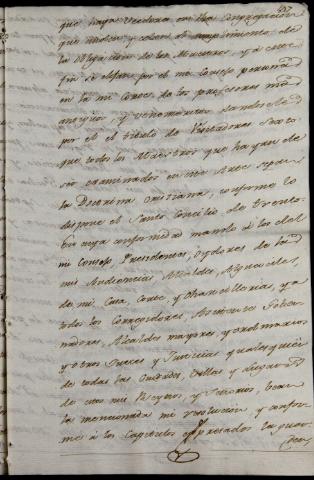 437
que haya Veedores en dha Congregacion
que zelen y el cumplimiento de
la Obligacion de los Maestros, y a este
fin se por el mi Consejo
en la mi Corte de los Profesores mas
antiguos y dandoles
por el el titulo de Visitadores
que todos los Maestros que hayan de
ser examinados en este Arte sepan
la Doctrina christiana, conforme lo
dispone el Santo Concilio de Trento.
En cuya conformidad mando a los del
mi Consejo, Presidentes, Oydores de las
mis Audiencias, Alcaldes, Alguaciles,
de mi Casa, Corte, y Chancillerias, y a
todos los Corregidores, Asistente, Gover-
nadores, Alcaldes mayores, y ordinarios
y otros Jueces y Justicias qualesquier
de todas las Ciudades, Villas, y Lugares
de estos mis Reynos, y Señorios, vean
la mencionada mi resolucion, y confor-
me à los Capitulos expresados la guar-
den